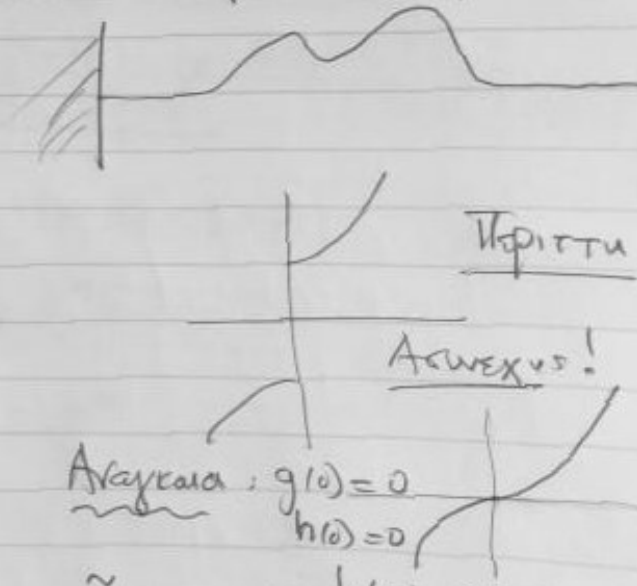 Περιττη
Ασυνεχης!
Αναγκαια : g(0) = 0
h(0) = 0